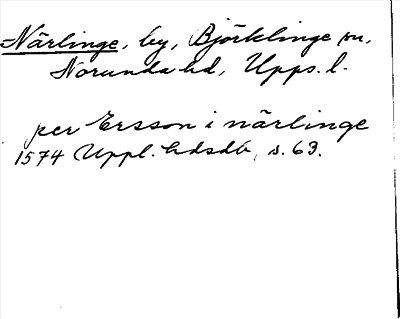 Närlinge, by, Björklinge sn,
Norunda hd, Upps. l.
per Ersson i närlinge
1574 Uppl. hdsdb, s. 63.